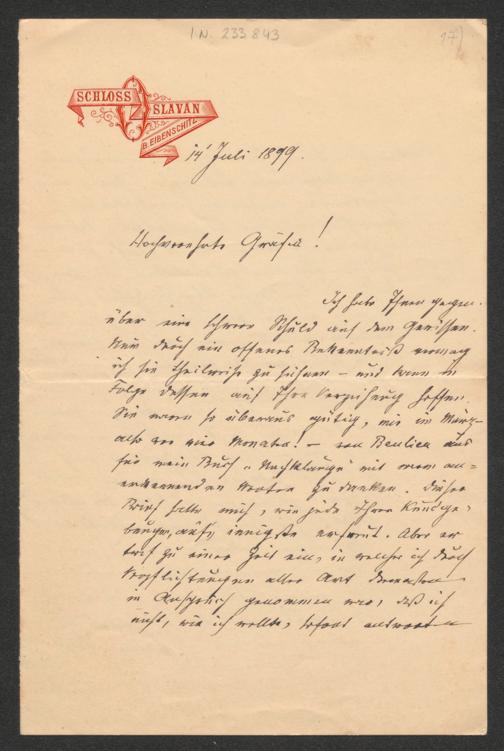 I.N. 233843
17)
SCHLOSS
SLAVAN
B. EIBENSCHITZ
14 Juli 1899.
Hochverehrte Gräfin!
Ich habe Ihnen gegen-
über eine schwere Schuld auf dem Gewissen.
Nur durch ein offenes Bekenntniß vermag
ich sie theilweise zu sühnen – und kann in
Folge dessen auf Ihre Verzeihung hoffen.
Sie waren so überaus gütig, mir im März –
also vor vier Monaten! – von aus
für mein Buch „Nachklänge" mit warm an-
erkennenden Worten zu danken. Dieser
Brief hatte mich, wie jede Ihrer Kundge-
bungen, aufs innigste erfreut. Aber er
traf zu einer Zeit ein, in welcher ich durch
Verpflichtungen aller Art dermaßen
in Anspruch genommen war, daß ich
nicht, wie ich wollte, sofort antworten